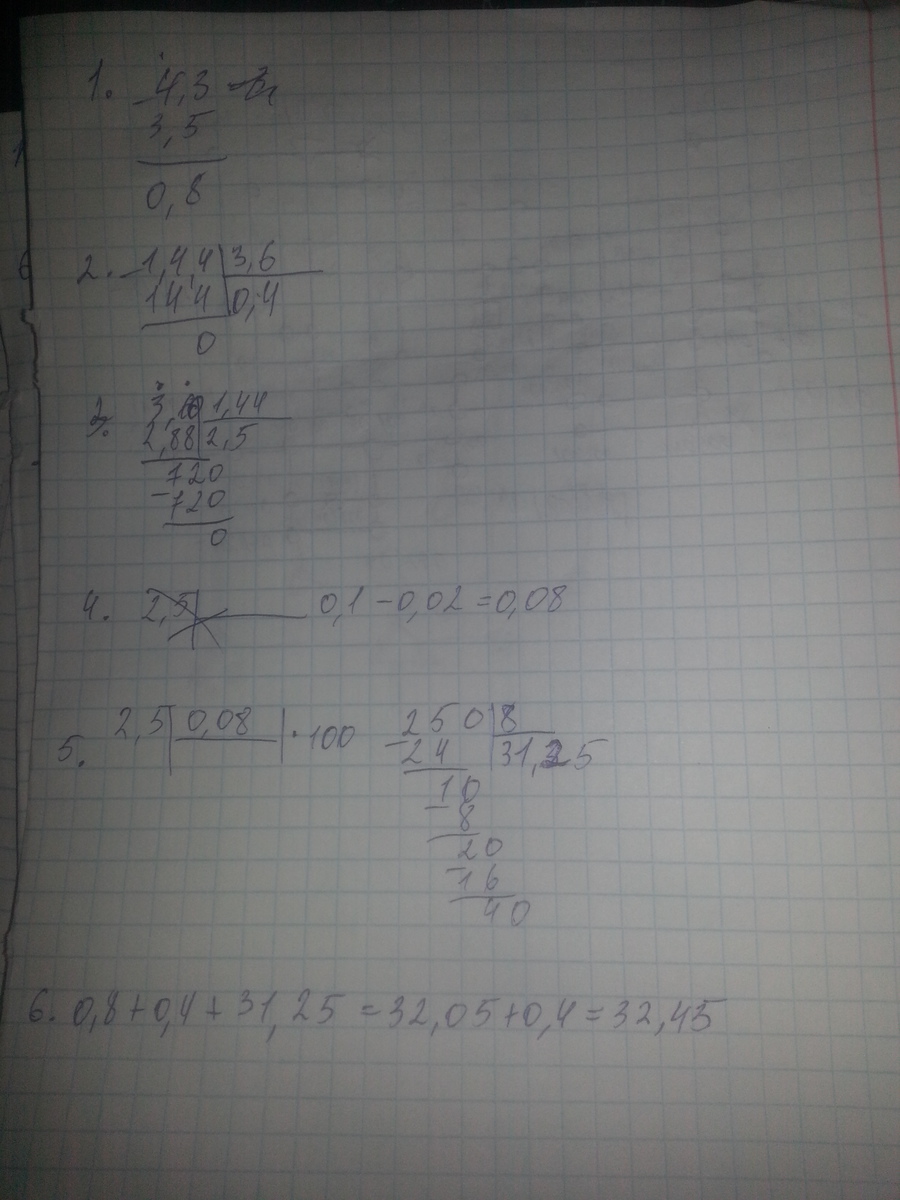 1. 4,3
3,5
0,8
2. 1,4,4 3,6
144 0,4
0
3. 1,44
2,88 2,5
720
-720
0
4. 2,5 0,1 - 0,02 = 0,08
5. 2,5 0,08 · 100 250 8
-24 31,25
10
-8
20
-16
40
6. 0,8 + 0,4 + 31,25 = 32,05 + 0,4 = 32,45